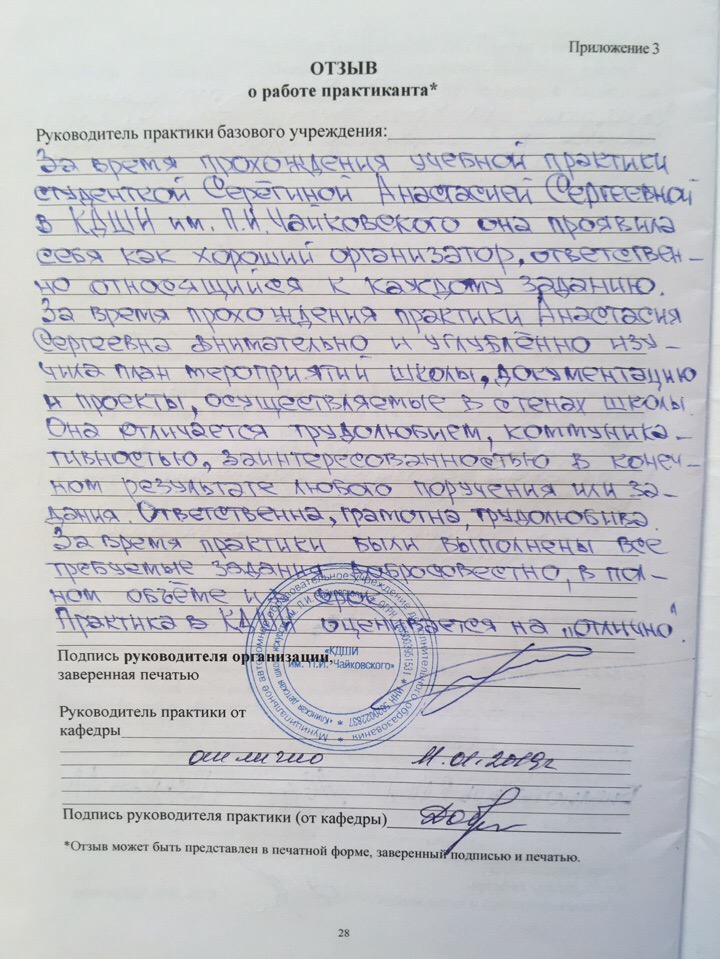 Приложение 3
ОТЗЫВ
о работе практиканта*
Руководитель практики базового учреждения:
За время прохождения учебной практики
студенткой Серёгиной Анастасией Сергеевной
в КДШИ им. П.И. Чайковского она проявила
себя как хороший организатор, ответствен-
но относящийся к каждому заданию.
За время прохождения практики Анастасия
Сергеевна внимательно и углублённо изу-
чила план мероприятий школы, документацию
и проекты, осуществляемые в стенах школы.
Она отличается трудолюбием, коммуника-
тивностью, заинтересованностью в конеч-
ном результате любого поручения или за-
дания. Ответственна, грамотна, трудолюбива.
За время практики были выполнены все
требуемые задания добросовестно, в пол-
ном объёме и в срок.
Практика в КДШИ оценивается на „отлично".
Подпись руководителя организации,
заверенная печатью
«КДШИ
им. П.И. Чайковского»
Руководитель практики от
кафедры
отлично 11.01.2019г
Подпись руководителя практики (от кафедры)
*Отзыв может быть представлен в печатной форме, заверенный подписью и печатью.
28